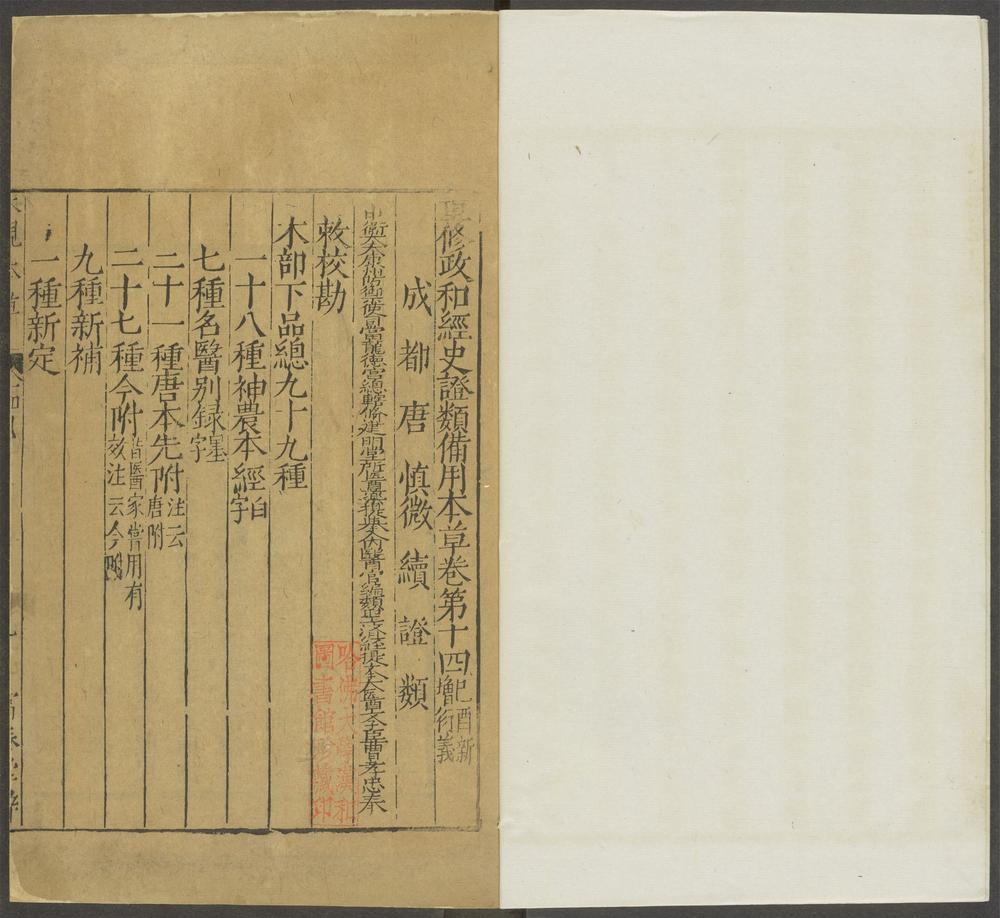 重修政和經史證類備用本草卷第十四己酉新增衍義
成都唐慎微續證類
中衛大夫康州防禦使句當龍德宮總轄修建明堂所醫藥提舉入內醫官編類聖濟經提舉太醫學臣曹孝忠奉
敕校勘
木部下品總九十九種
一十八種神農本經白字
七種名醫別録墨字
二十一種唐本先附注云唐附
二十七種今附皆醫家嘗用有效注云今附
九種新補
一種新定
哈佛大學漢和
圖書館珍藏印